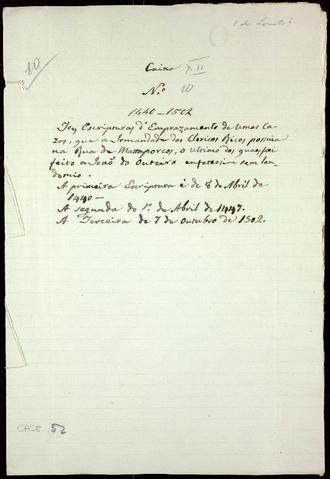 10
Caixa XII
Nº 10
1440-1502
Tres Escripturas d'Emprazamento de humas Ca-
zas, que a Irmandade dos Clerigos Ricos possuia
na Rua de Mataporcos, o ultimo dos quaes foi
feito a João do Outeiro emfatiosim sem lau-
demio.
A primeira Escriptura é de 8 de Abril de
1440-
A segunda do 1º de Abril de 1447.
A Terceira de 7 de Outubro de 1502.
CASE 52